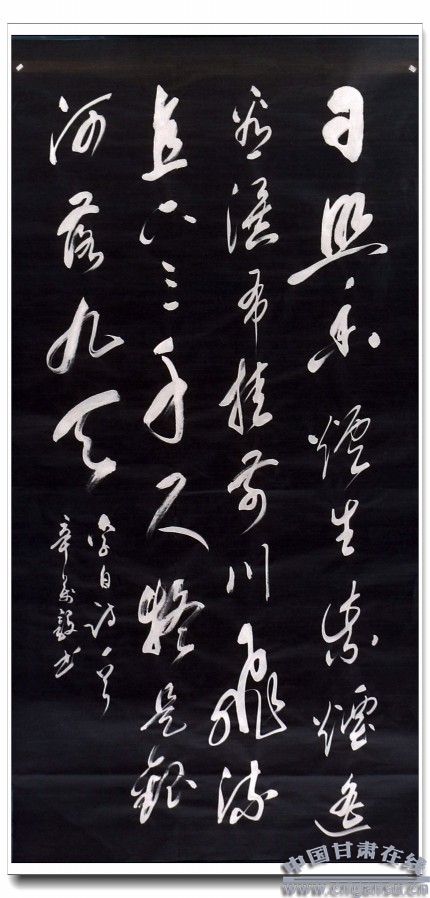 日照香爐生紫煙遙
看瀑布挂前川飛流
直下三千尺疑是銀
河落九天
李白诗一首
章 毅书
中国甘肃在线
www.cngansu.cn